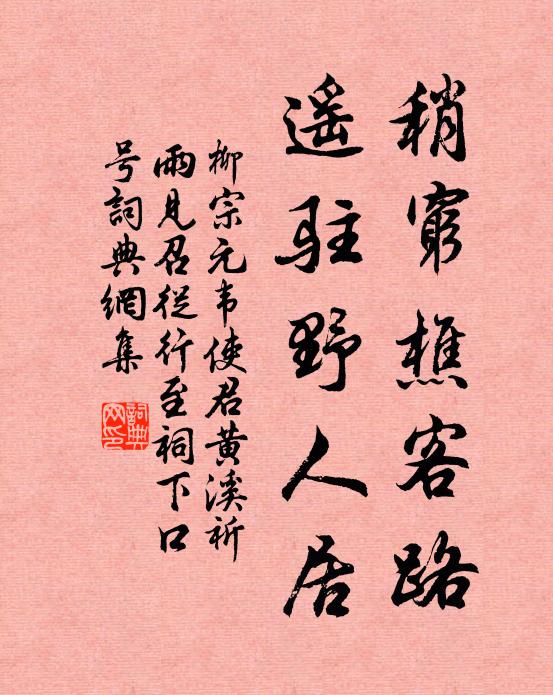 稍窮樵客路
遥駐野人居
柳宗元韦使君黄溪祈
雨見召從行至祠下口
号詞典網集
詞典网印